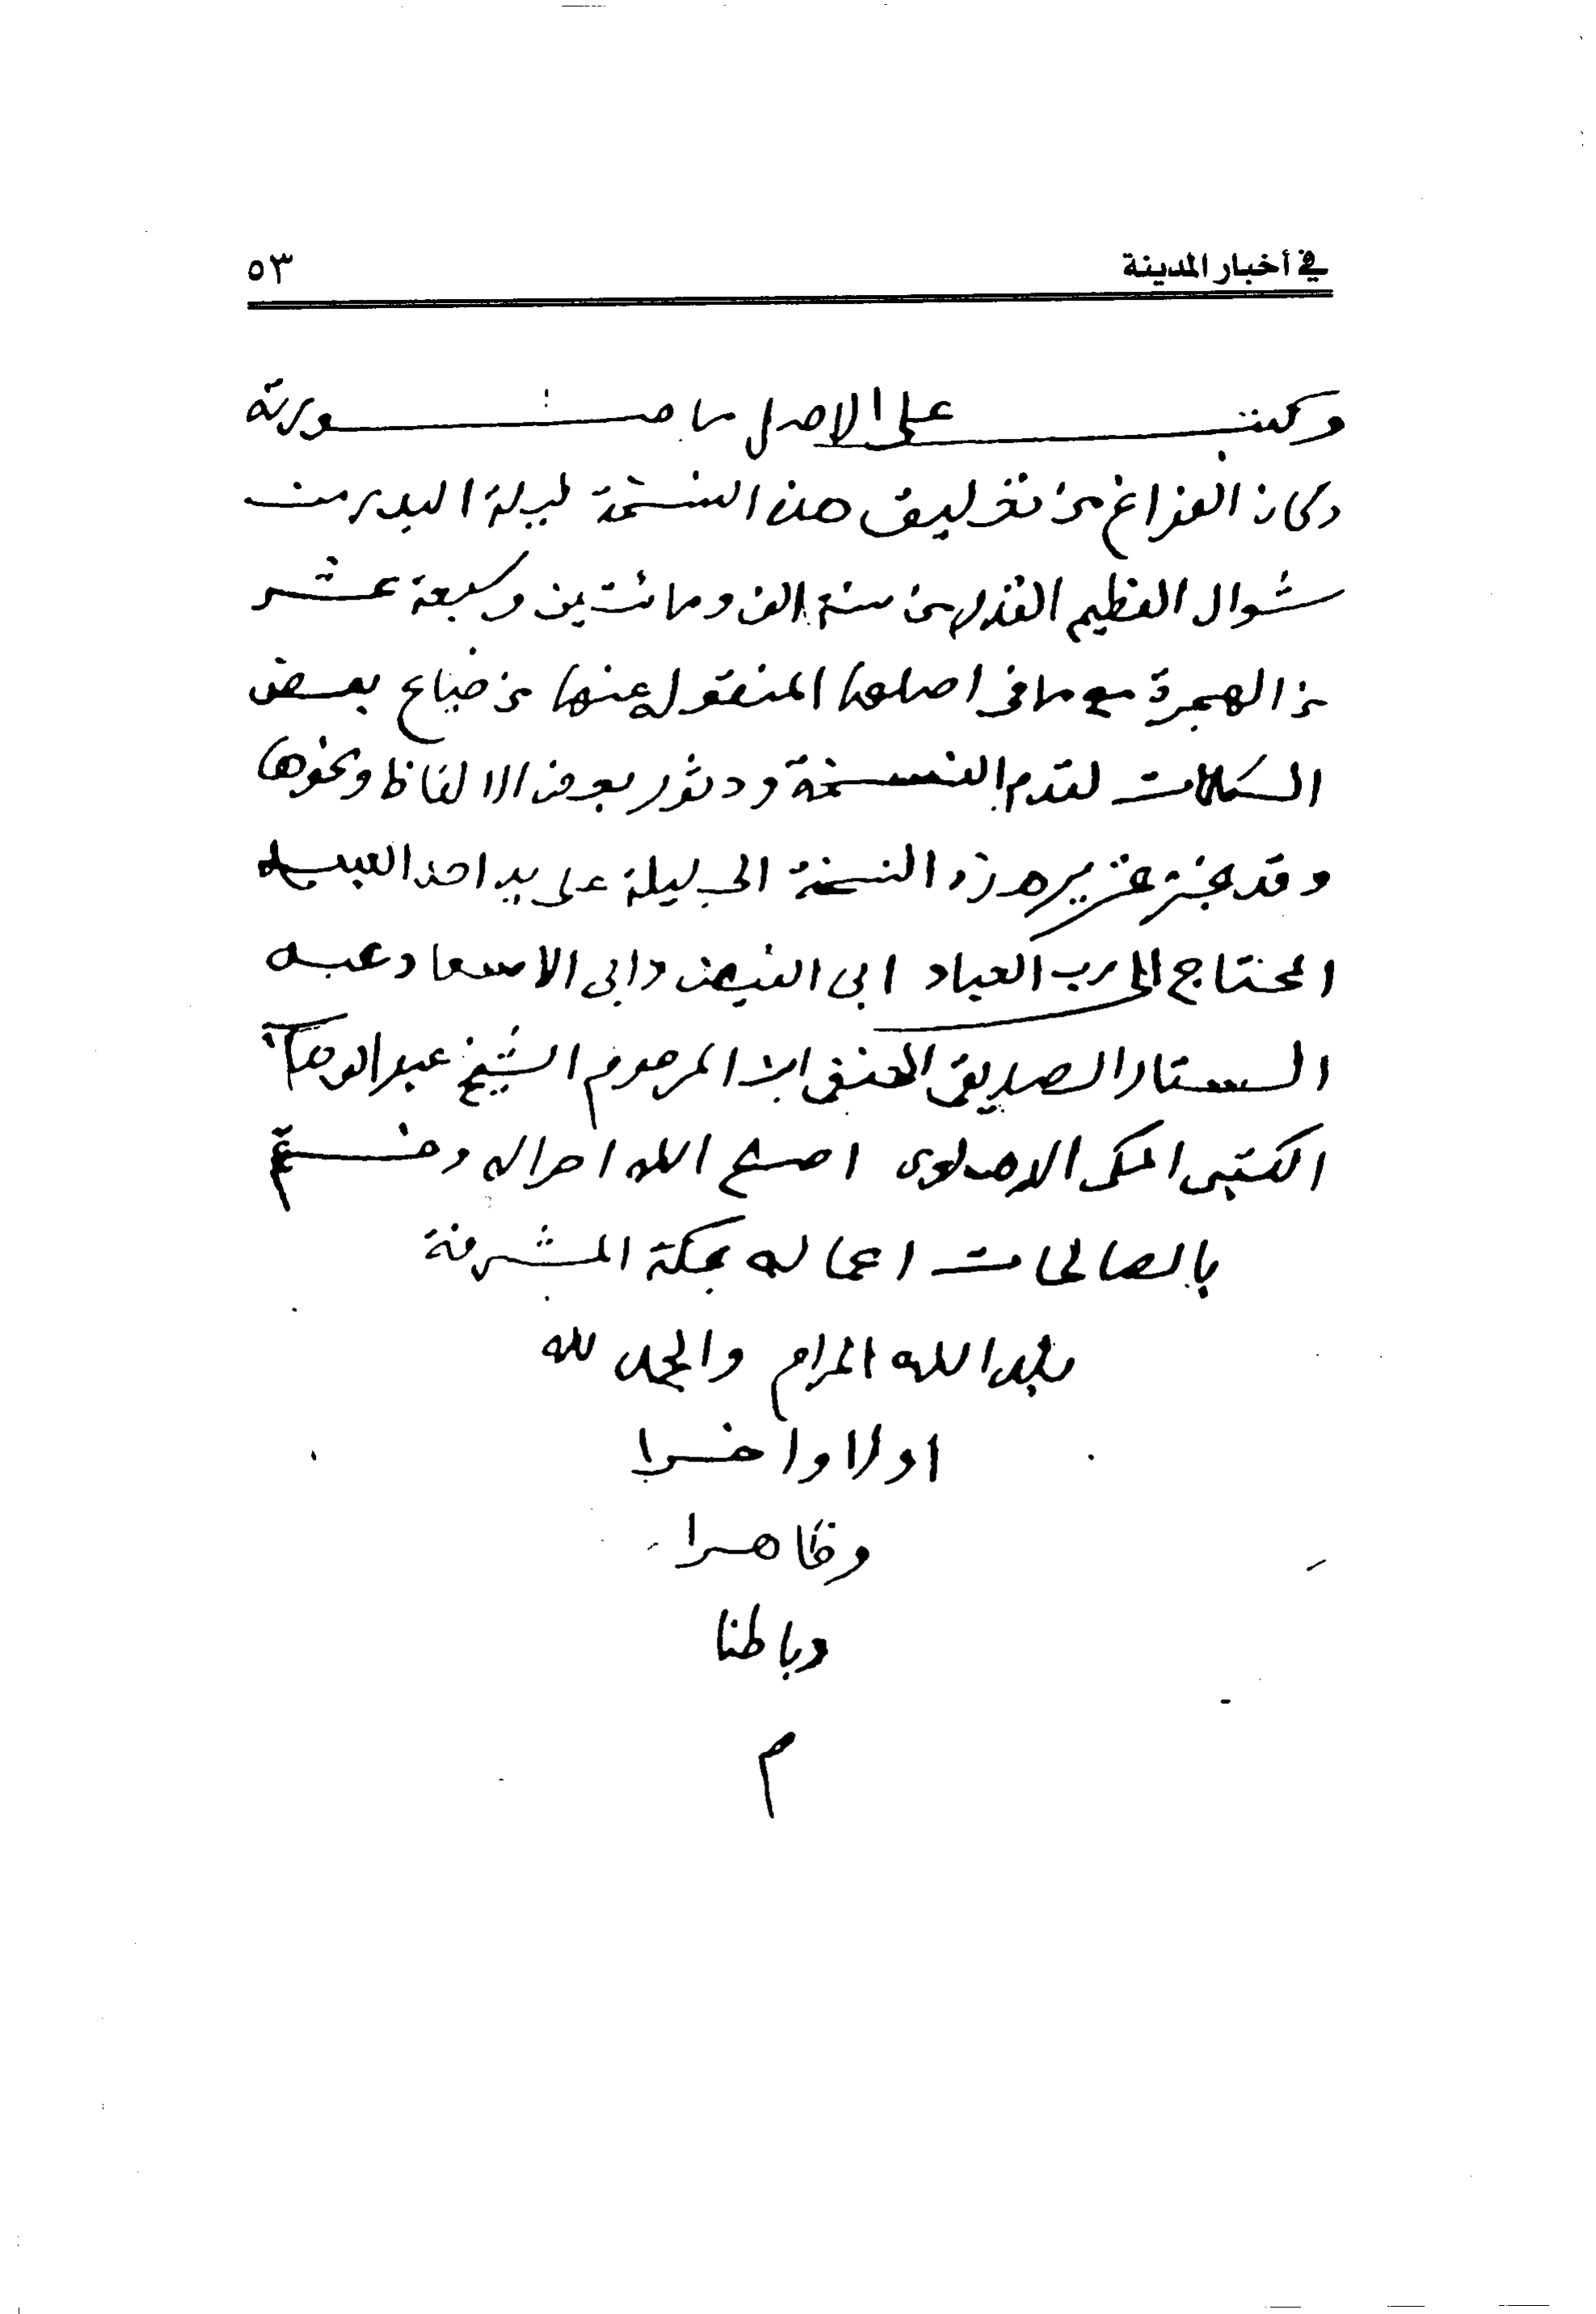 في أخبار المدينة
٥٣
وكتب على الاصل ما صورته
وكان الفراغ من تغليق هذه النسخة ليلة البدر من
شوال العظيم القدر من سنة الف ومائتين وسبعة عشر
من الهجرة مع ما في اصلها المنقول عنها من ضياع بعض
الكلمات لقدم النسخة ودثور بعض الالفاظ ونحوها
وقد نجز تحرير هذه النسخة الجليلة على يد احد العبيد
المحتاج الى رب العباد ابي الفيض وابي الاسعاد عبد
الستار الصديقي الحنفي ابن المرحوم الشيخ عبد الوهاب
الكتبي المكي الدهلوي اصلح الله احواله وختم
بالصالحات اعماله بمكة المشرفة
بلد الله الحرام والحمد لله
اولا واخرا
وظاهرا
وباطنا
م